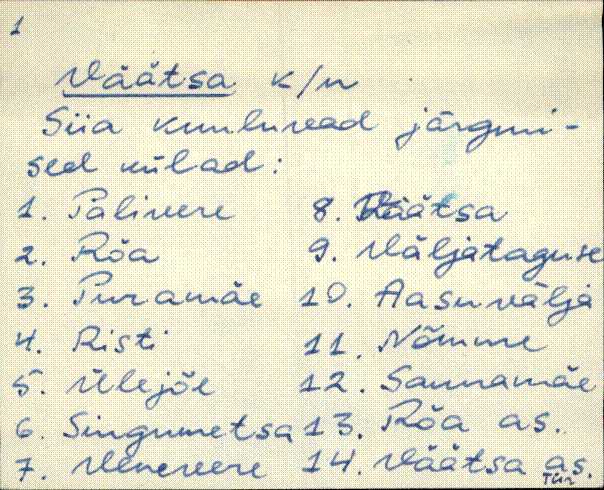 1
Väätsa k/n
Siia kuuluvad järgmi-
sed külad:
1. Palivere
2. Rõa
3. Puramäe
4. Risti
5. Ülejõe
6. Singumetsa
7. Venevere
8. Väätsa
9. Väljataguse
10. Aasuvälja
11. Nõmme
12. Saunamäe
13. Rõa as.
14. Väätsa as.
Tür